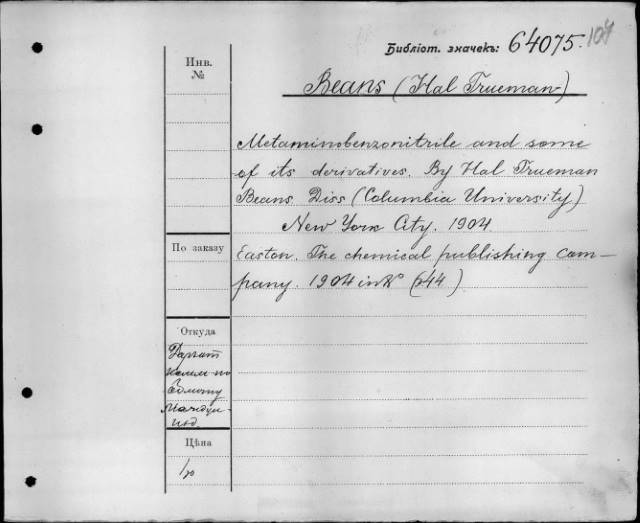 Библіот. значекъ: 64075. 104
Инв.
№
Beans (Hal Trueman)
Metaminobenzonitrile and some
of its derivatives. By Hal Trueman
Beans. Diss (Columbia University)
New York City. 1904
По заказу
Easton. The chemical publishing com-
pany. 1904 in 8° (44)
Откуда
Цѣна